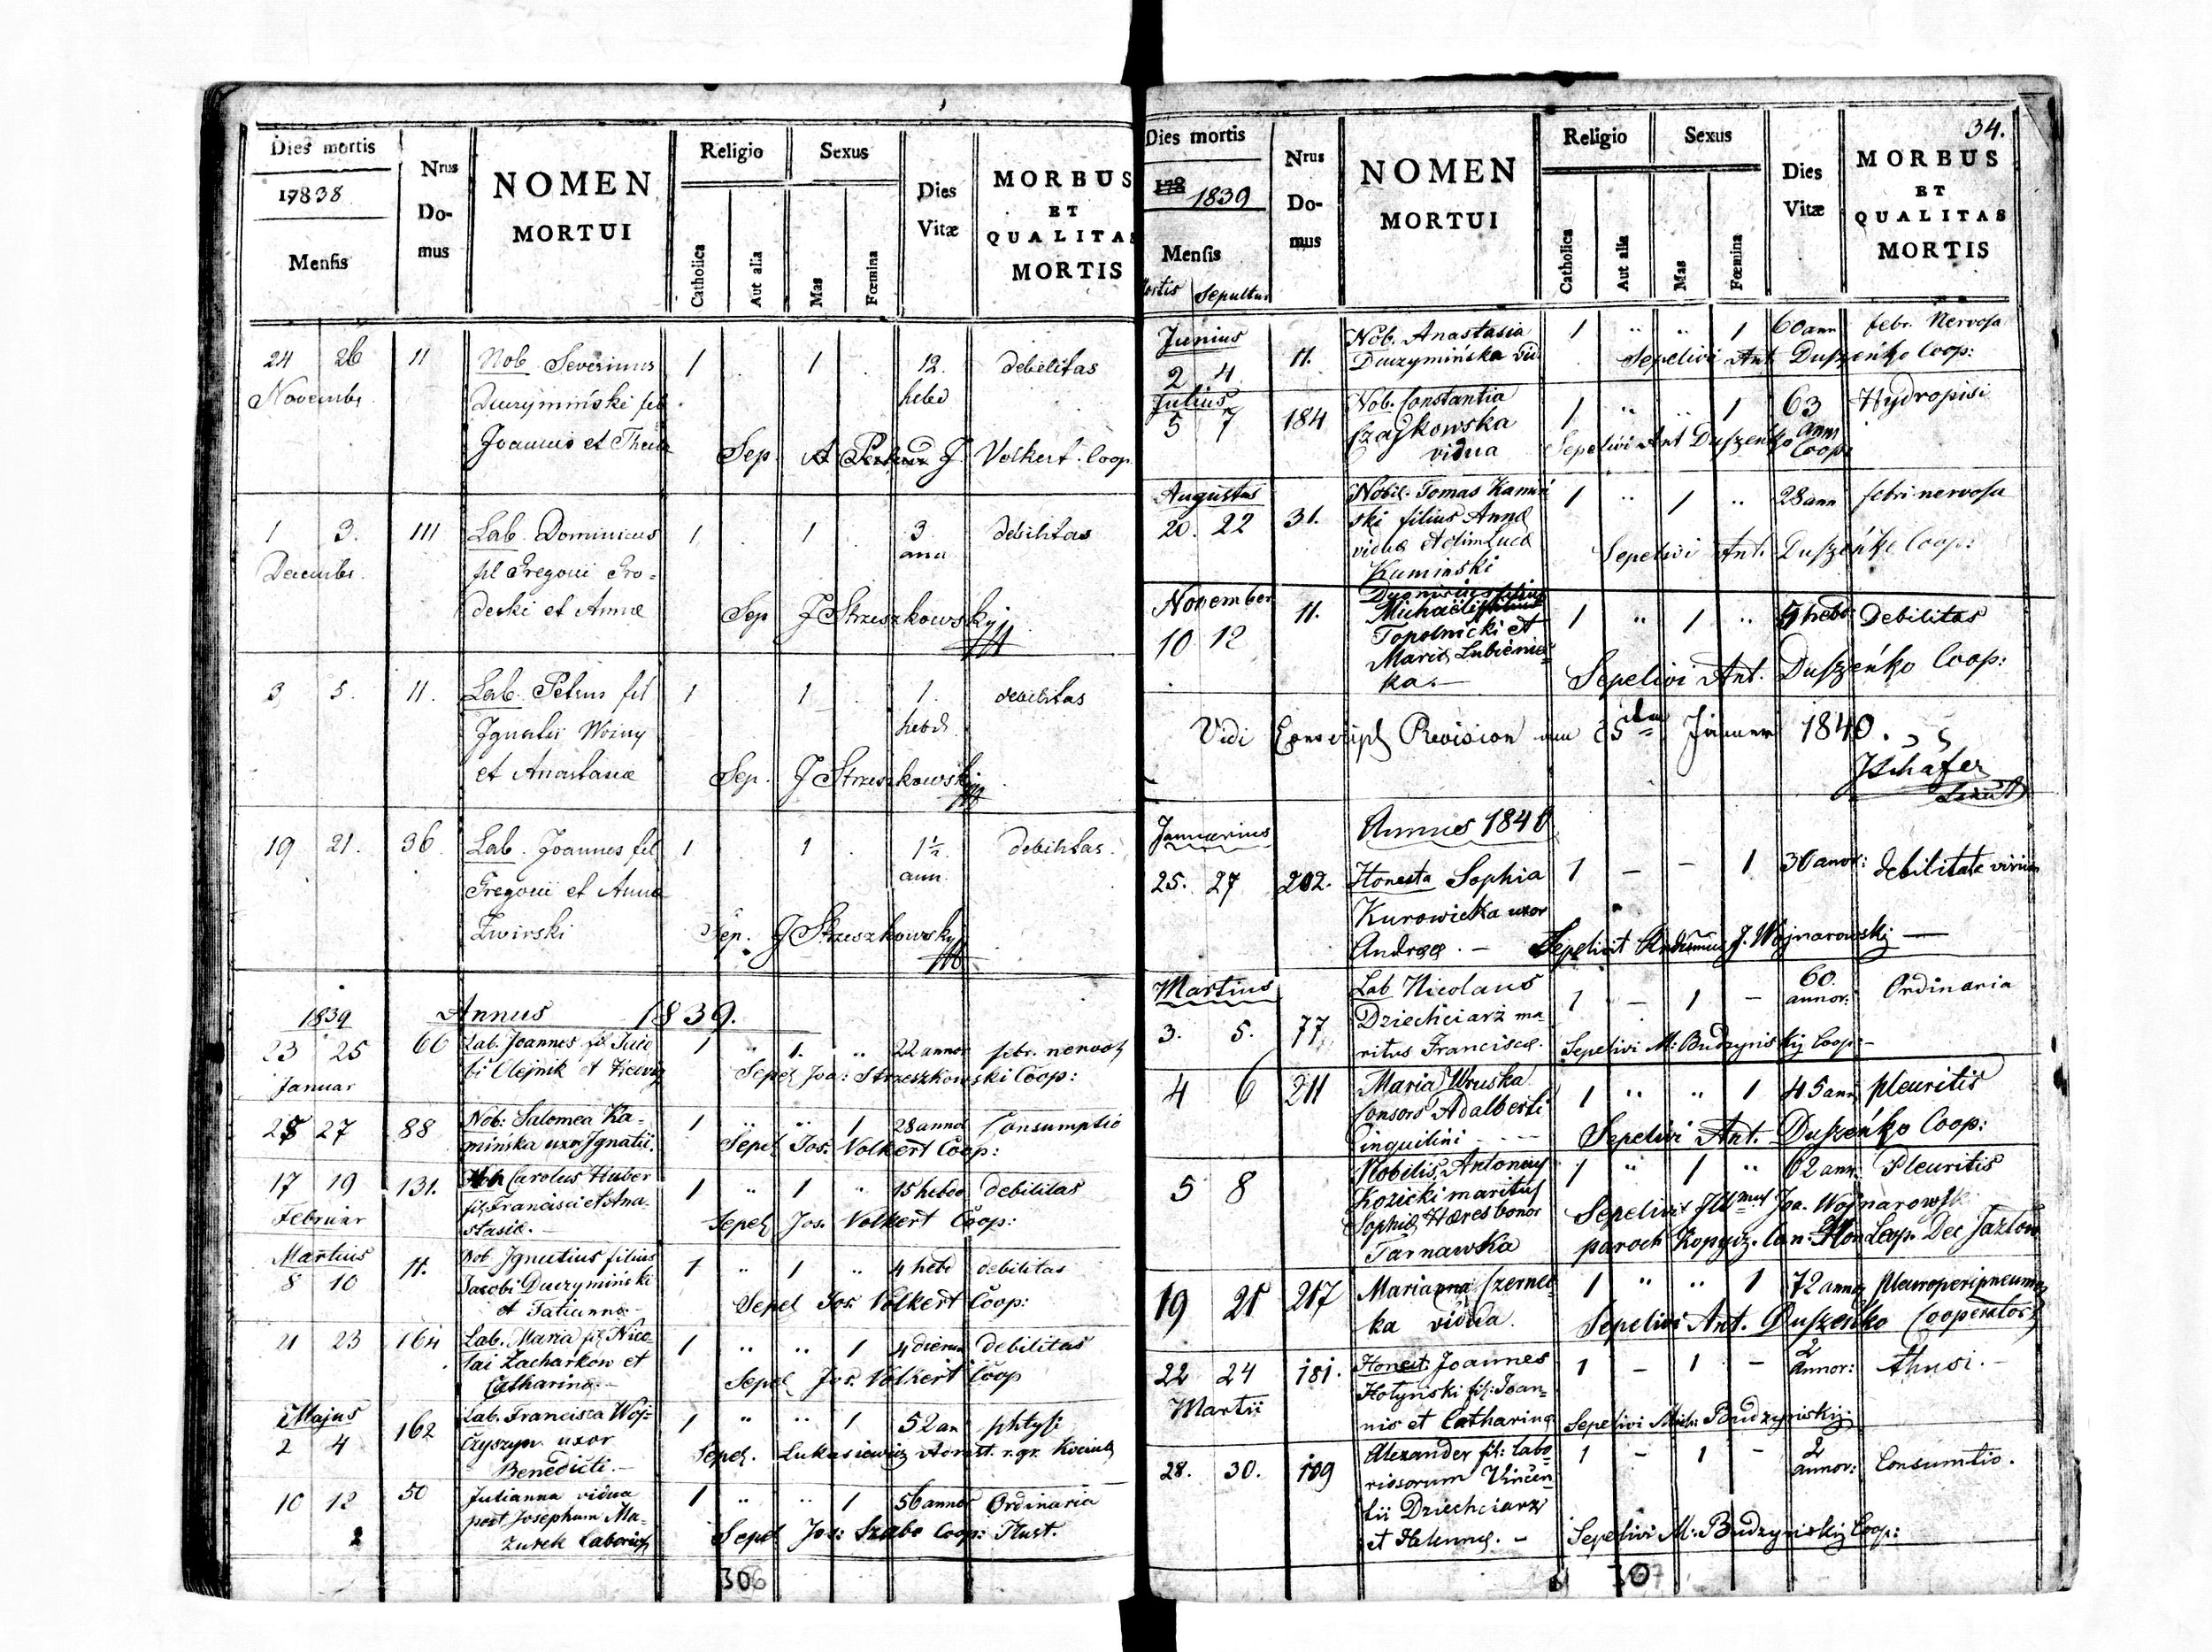 Dies mortis
17838
Mensis
Nrus
Do-
mus
NOMEN
MORTUI
Religio
Catholica
Aut alia
Sexus
Mas
Fœmina
Dies
Vitæ
MORBUS
ET
QUALITAS
MORTIS
24 26 11 Nob. Severinus 1 . 1 . 12. debilitas
Novembr. fil hebd
Joannis et
Sep. J. Volkert Coop
1 3. 111 Lab. Dominicus 1 . 1 . 3 debilitas
Decembr. fil Gregorii Gro= ann
decki et Annæ Sep J Strzeszkowskyj
3 5. 11. Lab. Petrus fil 1 1 . 1. debilitas
Ignatii Woiny hebd.
et Anastasiæ Sep. J Strzeszkowskyj
19 21. 36 Lab. Joannes fil 1 . 1 . 1½ debilitas.
Gregorii et Annæ ann.
Zwirski Sep. J Strzeszkowskyj
1839 Annus 1839.
23 25 66 Lab. Joannes fil 1 " 1. " 22 annor febr. nervos
bi Olejnik et Sepel Joa: Strzeszkowski Coop:
Januar
25 27 88 Nob: Salomea Ka= 1 " " 1 28 annor Consumptio
mińska uxor Ignatii. Sepel Jos. Volkert Coop:
17 19 131. Carolus Huber 1 " 1 " 15 hebdo debilitas
Februar fil Francisci et Ana-
stasiæ.- Sepel Jos. Volkert Coop:
Martius Nob Ignatius filius 1 " 1 " 4 hebd debilitas
8 10 11. Jacobi Duczymiński
et Tatiannæ- Sepel Jos. Volkert Coop:
21 23 164 Lab. Maria fil Nico 1 " " 1 4 dierum debilitas
lai Zacharkow et
Catharinæ.- Sepel Jos. Volkert Coop
Majus Lab. Francisca Woj= 1 " " 1 52 an
2 4 162 czyszyn uxor Sepel. Lukasiewicz
Benedicti.-
10 12 50 Julianna vidua 1 " " 1 56 annor Ordinaria
post Josephum Ma-
zurek Laborios Sepel Jos: Szabo Coop: Tlust.
306
34.
Dies mortis
178 1839
Mensis
Mortis Sepultur
Nrus
Do-
mus
NOMEN
MORTUI
Religio
Catholica
Aut alia
Sexus
Mas
Fœmina
Dies
Vitæ
MORBUS
ET
QUALITAS
MORTIS
Junius Nob. Anastasia 1 " " 1 60 ann febr. Nervosa
2 4 11. Duczymińska vid Sepelivi Ant Duszeńko Coop:
Julius Nob. Constantia 1 " " 1 63 Hydropisi
5 7 184 Czaykowska ann
vidua Sepelivi Ant Duszeńko Coop:
Augustus Nobil. Tomas Kamiń 1 " 1 " 28 ann febri nervosa
20. 22 31. ski filius Annæ
viduæ et olim Lucæ Sepelivi Ant. Duszeńko Coop:
Kaminski
November Dyonisius filius
10 12 11. Michaelis 1 " 1 " hebd Debilitas
Topolnicki et
Mariæ Lubienie=
ka.- Sepelivi Ant. Duszeńko Coop:
Vidi Conscript Revision am Jänner 1840.
JSchäfer
Januarius Annus 1840
25. 27 202. Honesta Sophia 1 - - 1 30 annor: debilitate virium
Kurowicka uxor
Andreæ. - Sepelivit J. Wojnarowskij -
Martius Lab Nicolaus 1 - 1 - 60. annor: Ordinaria
3. 5. 77 Dziechciarz ma-
ritus Franciscæ. Sepelivi M: Budzyniskij Coop:-
4 6 211 Maria Wruska 1 " " 1 45 ann pleuritis
Consors Adalberti
inquilini - - - Sepelivi Ant. Duszeńko Coop:
5 8 Nobilis Antonius 1 " 1 " 62 ann. Pleuritis
Kozicki maritus
Sophiæ Hæres bonor Sepelivit Joa. Wojnarowski
Tarnawka paroch
19 21 217 Marianna Czernec= 1 " " 1 72 annor pleuroperipneumon
ka vidua. Sepelivi Ant. Duszeńko Cooperator
22 24 181. Honest. Joannes 1 - 1 - 2 annor: thusi.-
Martii Hotynski fil: Joan=
nis et Catharinæ Sepelivi Mich: Budzyniskij
28. 30. 109 Alexander fil: labo 1 - 1 - 2 annor: Consumtio.
riosorum Vincen
tii Dziechciarz
et Helennæ. - Sepelivi M: Budzyniskij Coop:
307